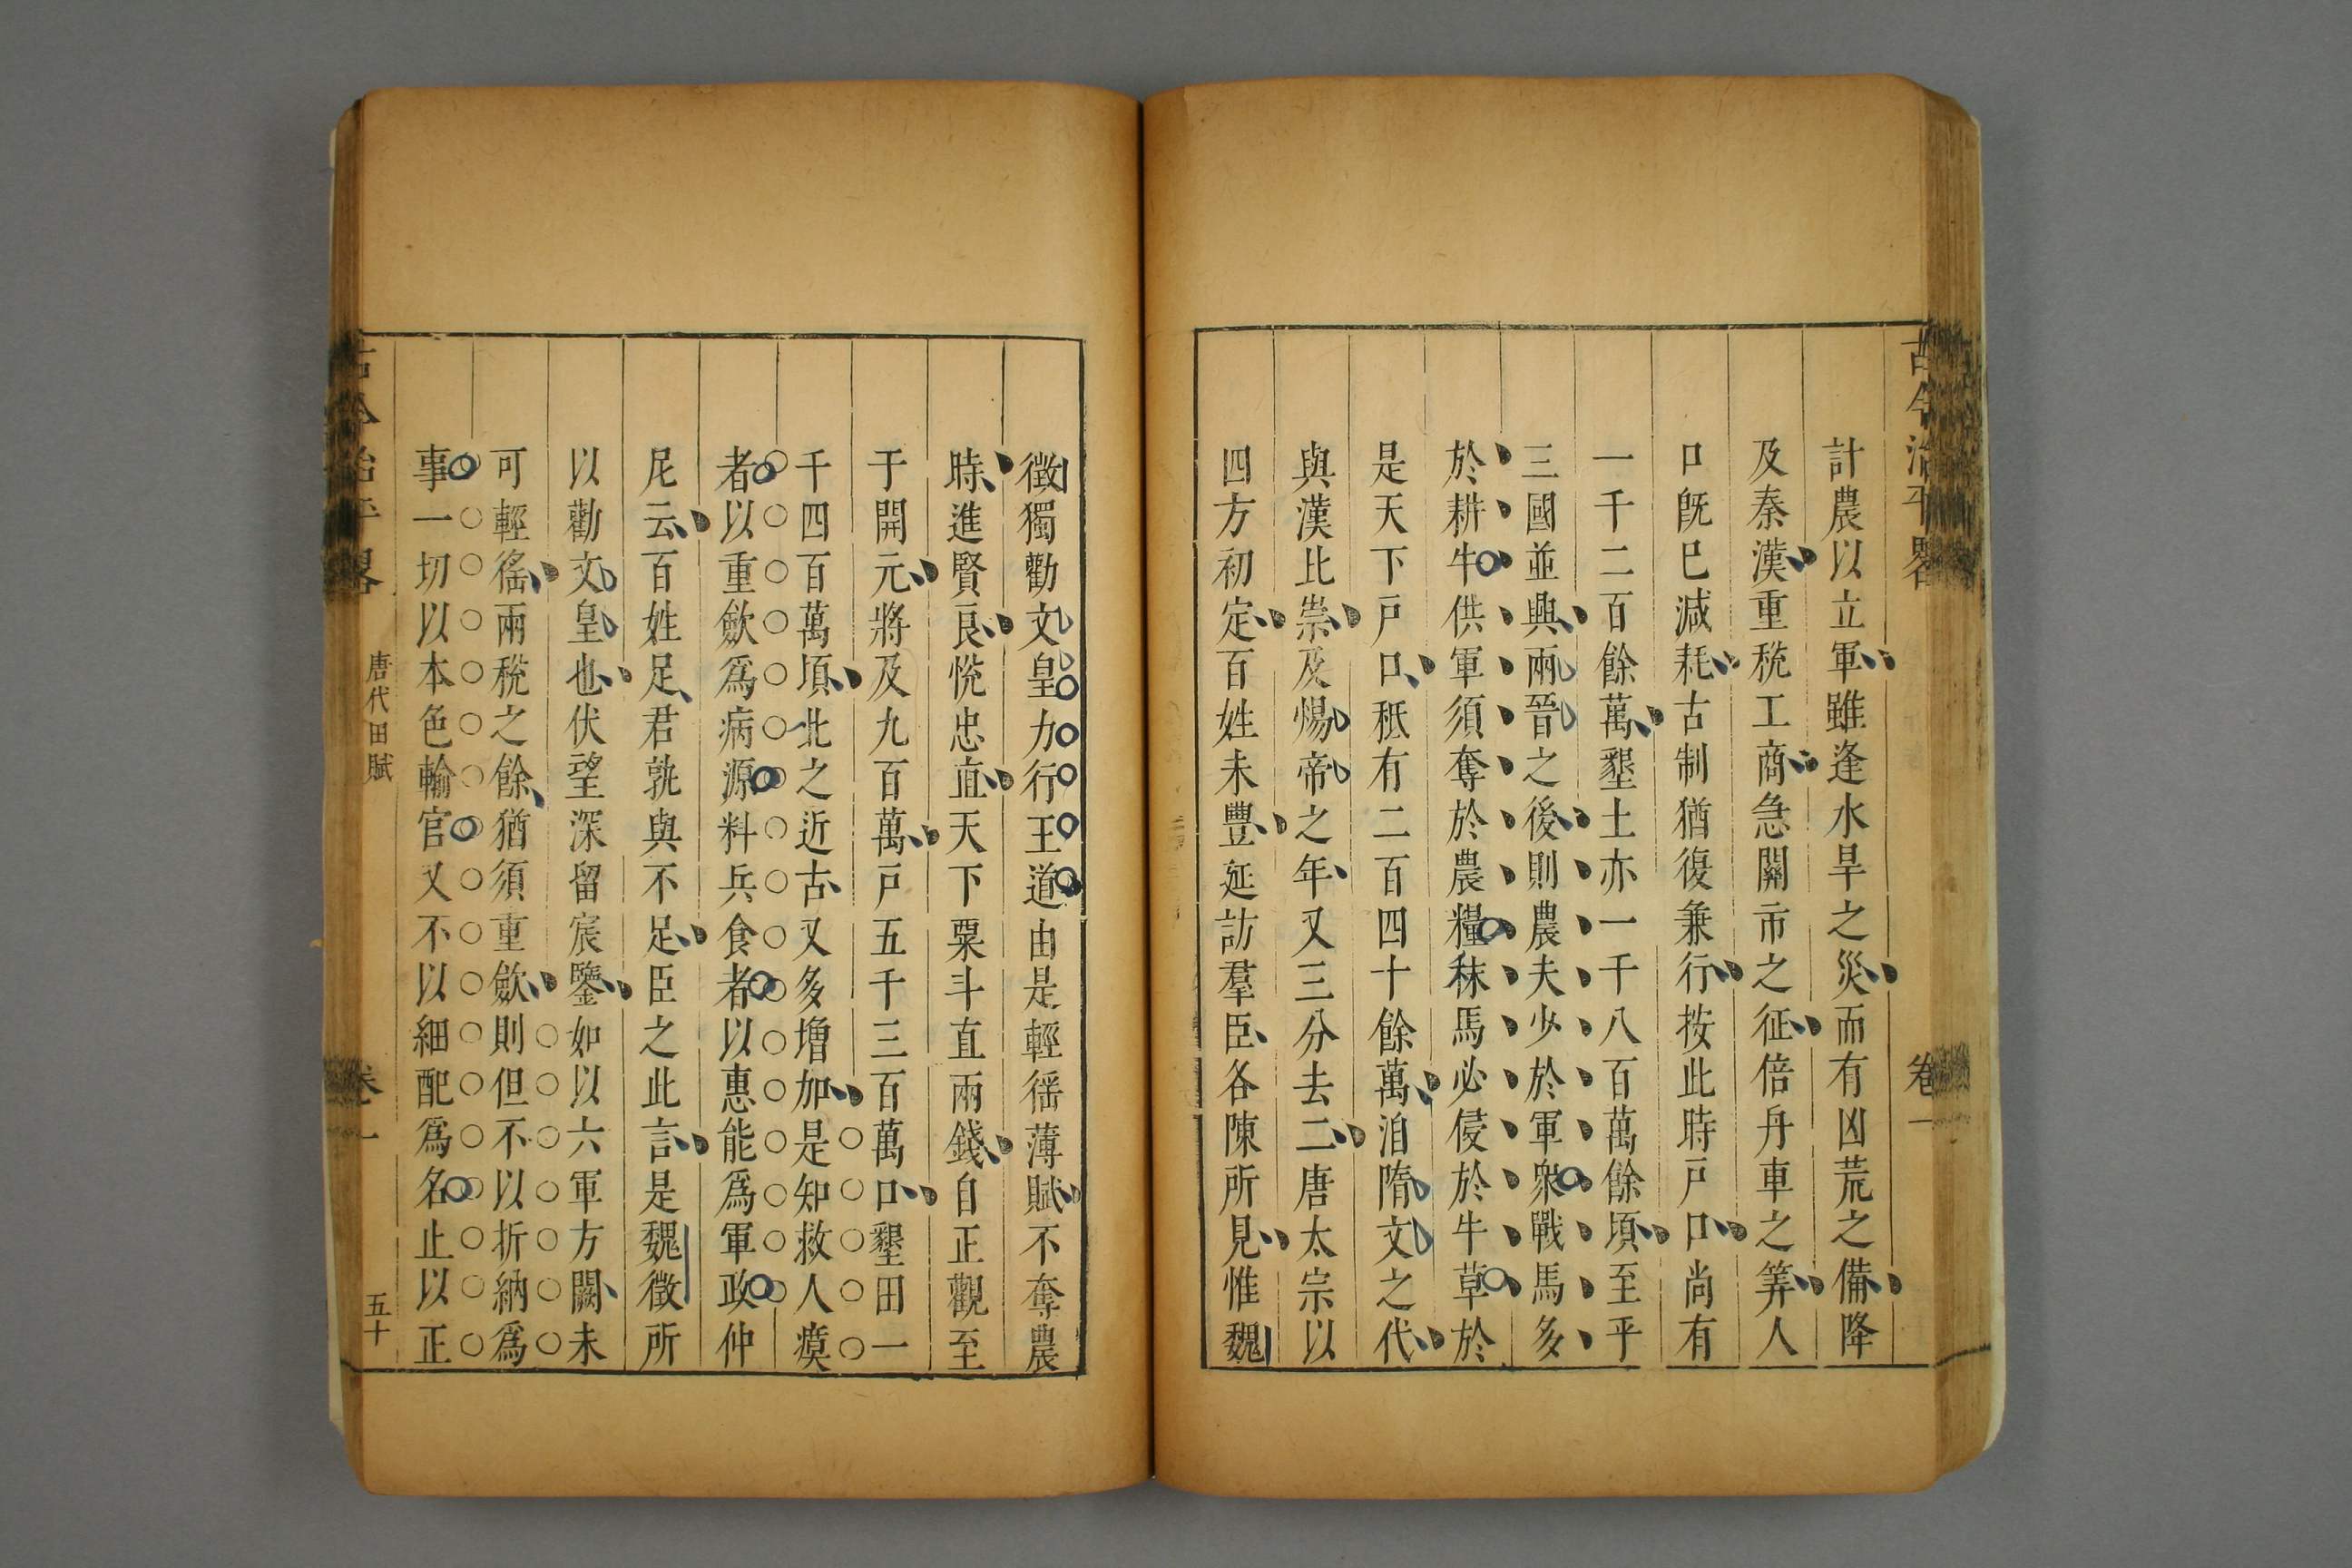 古今治平畧
卷一
計農以立軍雖逢水旱之災而有凶荒之備降
及秦漢重稅工商急關市之征倍舟車之筭人
口旣巳減耗古制猶復兼行按此時戶口尚有
一千二百餘萬墾土亦一千八百萬餘頃至乎
三國並興兩晉之後則農夫少於軍衆戰馬多
於耕牛供軍須奪於農糧秣馬必侵於牛草於
是天下戶口秖有二百四十餘萬洎隋文之代
與漢比崇及煬帝之年又三分去二唐太宗以
四方初定百姓未豐延訪羣臣各陳所見惟魏
徵獨勸文皇力行王道由是輕徭薄賦不奪農
時進賢良悅忠直天下粟斗直兩錢自正觀至
于開元將及九百萬戶五千三百萬口墾田一
千四百萬頃北之近古又多增加是知救人瘼
者以重歛爲病源料兵食者以惠能爲軍政仲
尼云百姓足君孰與不足臣之此言是魏徵所
以勸文皇也伏望深留宸鑒如以六軍方闕未
可輕徭兩稅之餘猶須重歛則但不以折納爲
事一切以本色輸官又不以細配爲名止以正
古今治平畧
唐代田賦
卷一
五十